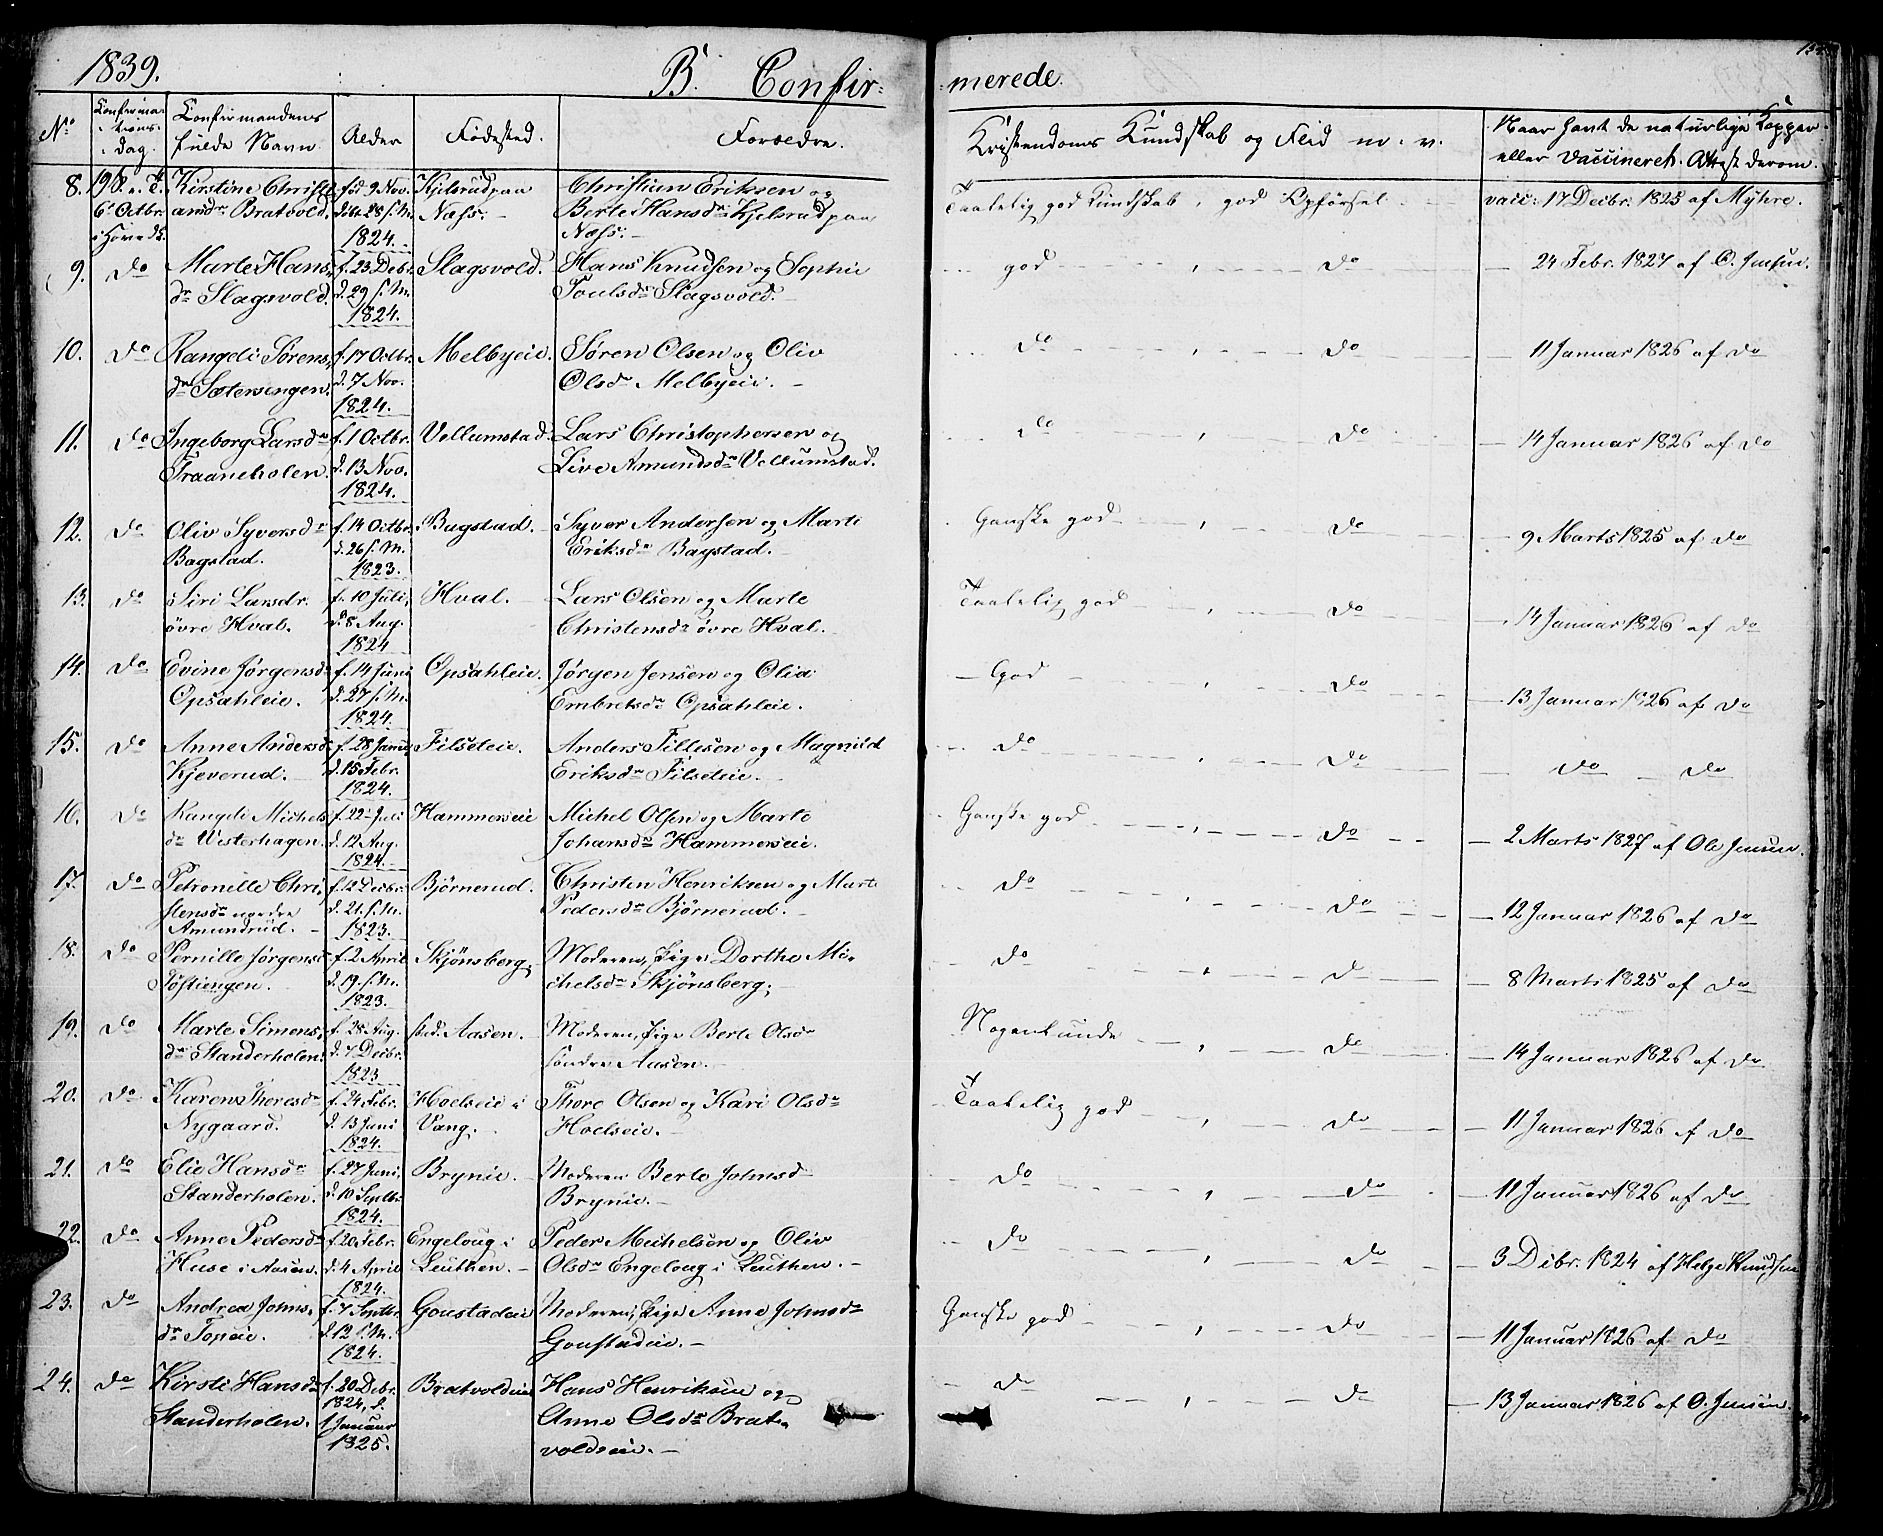 1839.
B. Confir-
merede.
No
Confirma-
tions-
dag.
Confirmandens
fulde Navn
Alder
Fødested.
Forældre.
Kristendoms Kundskab og Flid m. v.
Naar havt de naturlige Kopper
eller vaccineret. Attest derom.
8. 19 S. e. T. Kirstine Christi- fød 9 Nov. Kjelsrud paa Christian Eriksen og Taalelig god Kundskab, god Opførsel vacc: 17 Decbr. 1825 af Myhre.
6te Octbr. ansdr Bratvold. døbt 28 s. M. Næss. Berte Hansdr Kjelsrud paa
i Hovedk. 1824. Næss.
9. do Marte Hans- f. 23 Debr. Slagsvold. Hans Knudsen og Sophie god , do 24 Febr. 1827 af O. Jensen.
dr Slagsvold. d. 29 s. M. Poulsdr Slagsvold.
1824.
10. do Rangdi Sørens- f. 17 Octbr. Melbyeie. Søren Olsen og Oliv do , do 11 Januar 1826 af do
dr Sætersengen. d. 7 Nov. Olsdr Melbyeie.
1824.
11. do Ingeborg Larsdr f. 1 Octbr. Vellumstad. Lars Christophersen og do , do 14 Januar 1826 af do
Traaneholen. d. 13 Nov. Live Amundsdr Vellumstad.
1824.
12. do Oliv Syversdr f. 14 Octbr. Bagstad. Syver Andersen og Marte Ganske god , do 9 Marts 1825 af do
Bagstad. d. 26 s. M. Eriksdr Bagstad.
1823.
13. do Siri Larsdr. f. 10 Juli, Hval. Lars Olsen og Marte Taalelig god , do 14 Januar 1826 af do
øvre Hval. d. 8 Aug. Christensdr øvre Hval.
1824
14. do Evine Jørgensd. f. 14 Juni Opsahleie. Jørgen Jensen og Olia God , do 13 Januar 1826 af do
Opsahleie. d. 27 s. M. Embretsdr Opsahleie.
1824.
15. do Anne Andersd. f. 28 Janu. Filseteie. Anders Tillesen og Magnild do , do do do
Kjeverud. d. 15 Febr. Eriksdr Filseteie.
1824.
16. do Rangdi Michels- f. 22 Juli Hammerseie Michel Olsen og Marte Ganske god , do 2 Marts 1827 af Ole Jensen.
dr Westerhagen. d. 12 Aug. Johansdr Hammerseie.
1824.
17. do Petronille Chri- f. 12 Decbr. Bjørnerud. Christen Henriksen og Marte do , do 12 Januar 1826 af do
stensdr nordre d. 21. s. M. Pedersdr Bjørnerud.
Amundrud. 1823.
18. do Pernille Jørgens- f. 2 April Skjønsberg. Moderen, Pige Dorthe Mi- do , do 8 Marts 1825 af do
Tøftiengen. d. 19. s. M. chelsdr Skjønsberg.
1823.
19. do Marte Simens- f. 28 Aug. Aasen. Moderen, Pige Berte Olsdr Nogenlunde , do 14 Januar 1826 af do
dr Standerholen. d. 7 Decbr. søndre Aasen.
1823
20. do Karen Thoresdr f. 24 Febr. Hoelseie i Thore Olsen og Kari Olsdr Taalelig god , do 11 Januar 1826 af do
Nygaard. d. 13 Juni Vang. Hoelseie.
1824.
21. do Elie Hansdr f. 27 Juni, Brynie. Moderen Berte Johnsd. do , do 11 Januar 1826 af do
Standerholen. d. 10 Septbr. Brynie.
1824.
22. do Anne Pedersdr f. 20 Febr. Engeloug i Peder Michelsen og Oliv do , do 3 Debr. 1824 af Helge Knudsen
Huse i Aasen. d. 4 April Leuthen. Olsdr Engeloug i Leuthen.
1824.
23. do Andrea Johns- f. 7 Septbr. Goustadeie Moderen, Pige Anne Johnsdr Ganske god , do 11 Januar 1826 af do
dr Topeie. d. 12 s. M. Goustadeie.
1824.
24. do Kirsti Hansdr f. 20 Debr. Bratvoldeie Hans Henriksen og do , do 13 Januar 1826 af O. Jensen.
Standerholen. 1824, d. Anne Olsdr Brat-
1 Januar voldeie.
1825.